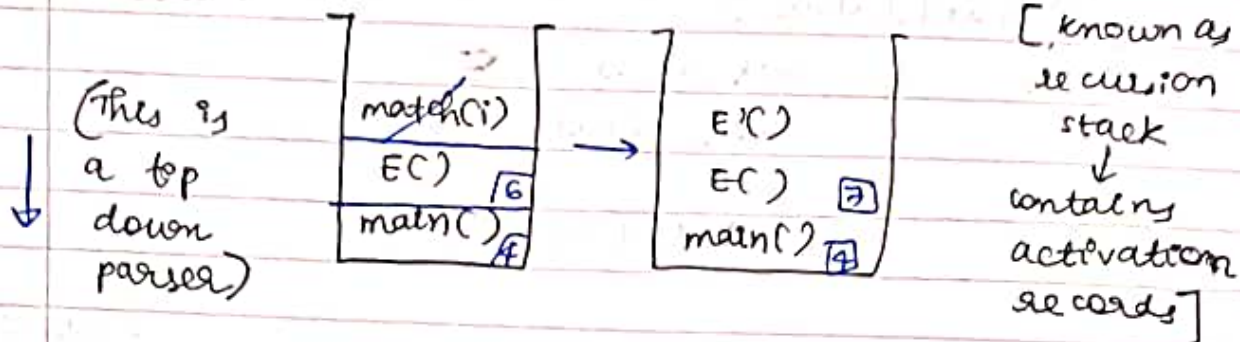 (This is
a top
down
parser)
match(i)
E( ) 6
main( ) 4
→
E'( )
E( ) 7
main( ) 4
[known as
recursion
stack
↓
contains
activation
records]